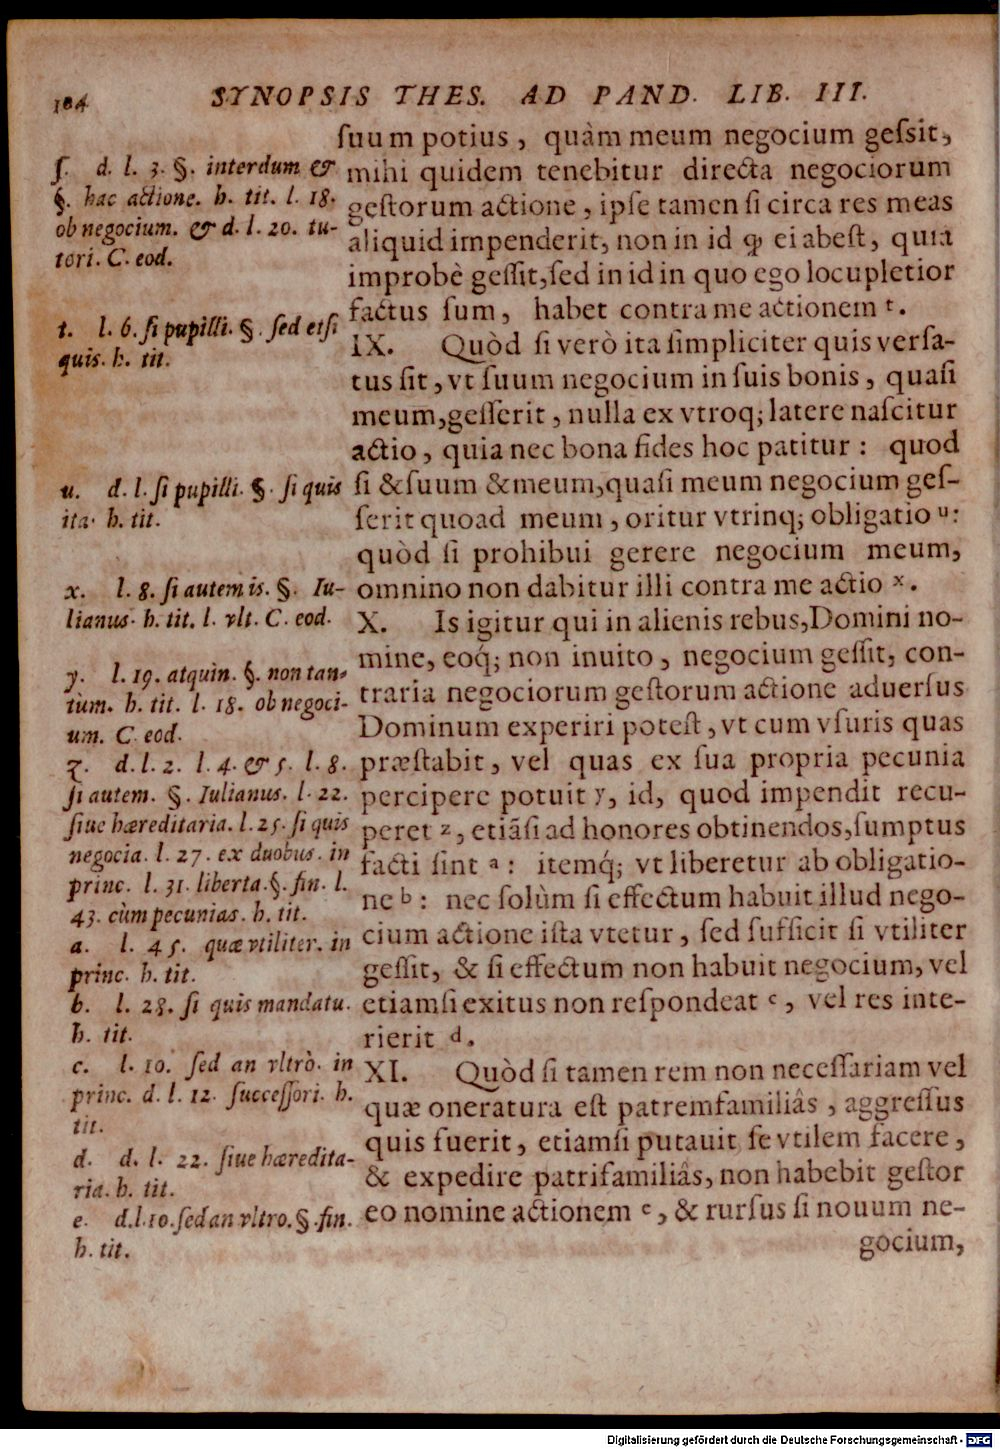 184 SYNOPSIS THES. AD PAND. LIB. III.
ſuum potius, quàm meum negocium geſsit,
mihi quidem tenebitur directa negociorum
geſtorum actione, ipſe tamen ſi circa res meas
aliquid impenderit, non in id ꝙ ei abeſt, quia
improbè geſſit, ſed in id in quo ego locupletior
factus ſum, habet contra me actionem t.
IX. Quòd ſi verò ita ſimpliciter quis verſa-
tus ſit, vt ſuum negocium in ſuis bonis, quaſi
meum, geſſerit, nulla ex vtroq; latere naſcitur
actio, quia nec bona fides hoc patitur: quod
ſi & ſuum & meum, quaſi meum negocium geſ-
ſerit quoad meum, oritur vtrinq; obligatio u:
quòd ſi prohibui gerere negocium meum,
omnino non dabitur illi contra me actio x.
X. Is igitur qui in alienis rebus, Domini no-
mine, eoq́; non inuito, negocium geſſit, con-
traria negociorum geſtorum actione aduerſus
Dominum experiri poteſt, vt cum vſuris quas
præſtabit, vel quas ex ſua propria pecunia
percipere potuit y, id, quod impendit recu-
peret z, etiãſi ad honores obtinendos, ſumptus
facti ſint a: itemq́; vt liberetur ab obligatio-
ne b: nec ſolùm ſi effectum habuit illud nego-
cium actione iſta vtetur, ſed ſufficit ſi vtiliter
geſſit, & ſi effectum non habuit negocium, vel
etiamſi exitus non reſpondeat c, vel res inte-
rierit d.
XI. Quòd ſi tamen rem non neceſſariam vel
quæ oneratura eſt patremfamiliâs, aggreſſus
quis fuerit, etiamſi putauit ſe vtilem facere,
& expedire patrifamiliâs, non habebit geſtor
eo nomine actionem e, & rurſus ſi nouum ne-
gocium,
ſ. d. l. 3. §. interdum &
§. hac actione. h. tit. l. 18.
ob negocium. & d. l. 20. tu-
tori. C. eod.
t. l. 6. ſi pupilli. §. ſed etſi
quis. h. tit.
u. d. l. ſi pupilli. §. ſi quis
ita. h. tit.
x. l. 8. ſi autem is. §. Iu-
lianus. h. tit. l. vlt. C. eod.
y. l. 19. atquin. §. non tan-
tùm. h. tit. l. 18. ob negoci-
um. C. eod.
z. d. l. 2. l. 4. & 5. l. 8.
ſi autem. §. Iulianus. l. 22.
ſiue hæreditaria. l. 25. ſi quis
negocia. l. 27. ex duobus. in
princ. l. 31. liberta. §. fin. l.
43. cùm pecunias. h. tit.
a. l. 45. quæ vtiliter. in
princ. h. tit.
b. l. 28. ſi quis mandatu.
h. tit.
c. l. 10. ſed an vltrò. in
princ. d. l. 12. ſucceſſori. h.
tit.
d. d. l. 22. ſiue hæredita-
ria. h. tit.
e. d. l. 10. ſed an vltro. §. fin.
h. tit.
Digitalisierung gefördert durch die Deutsche Forschungsgemeinschaft - DFG